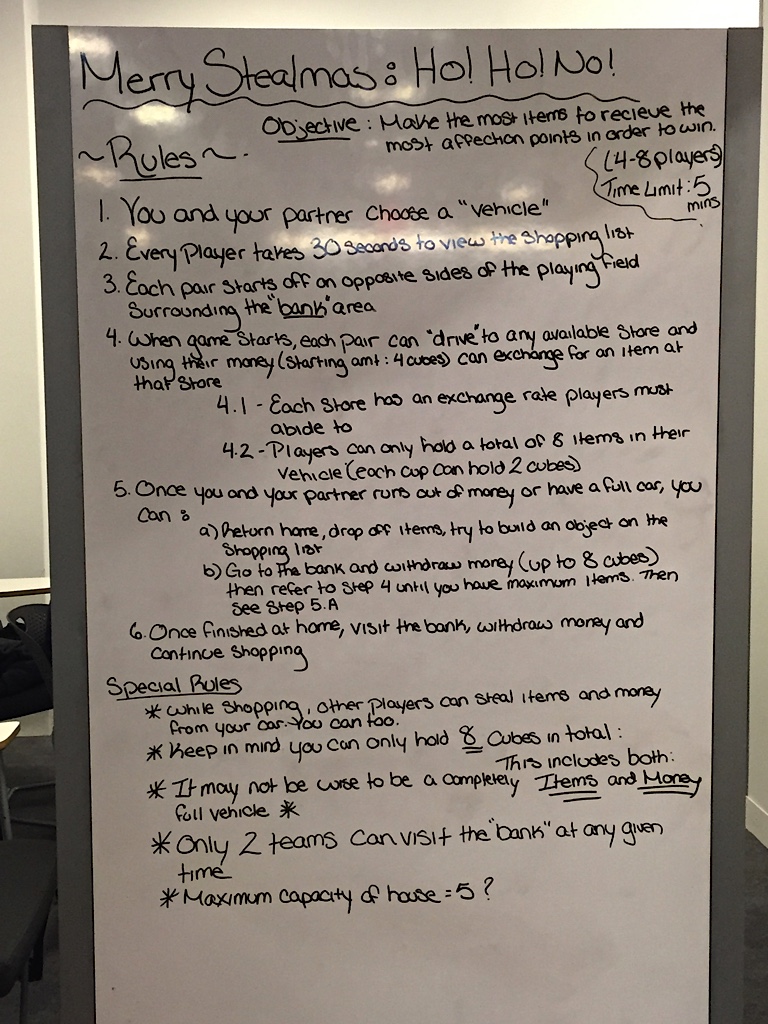 Merry Stealmas: Ho! Ho! No!
Objective: Make the most items to recieve the
most affection points in order to win.
~Rules~
(4-8 players)
Time Limit: 5
mins
1. You and your partner choose a "vehicle"
2. Every Player takes 30 seconds to view the shopping list
3. Each pair starts off on opposite sides of the playing field
surrounding the "bank" area
4. When game starts, each pair can "drive" to any available store and
using their money (starting amt: 4 cubes) can exchange for an item at
that store
4.1 - Each store has an exchange rate players must
abide to
4.2 - Players can only hold a total of 8 items in their
vehicle (each cup can hold 2 cubes)
5. Once you and your partner runs out of money or have a full car, you
can:
a) Return home, drop off items, try to build an object on the
shopping list
b) Go to the bank and withdraw money (up to 8 cubes)
then refer to step 4 until you have maximum items. Then
see step 5.A
6. Once finished at home, visit the bank, withdraw money and
continue shopping
Special Rules
* While shopping, other players can steal items and money
from your car. You can too.
* Keep in mind you can only hold 8 cubes in total:
This includes both:
Items and Money
* It may not be wise to be a completely
full vehicle *
* Only 2 teams can visit the "bank" at any given
time
* Maximum capacity of house = 5?